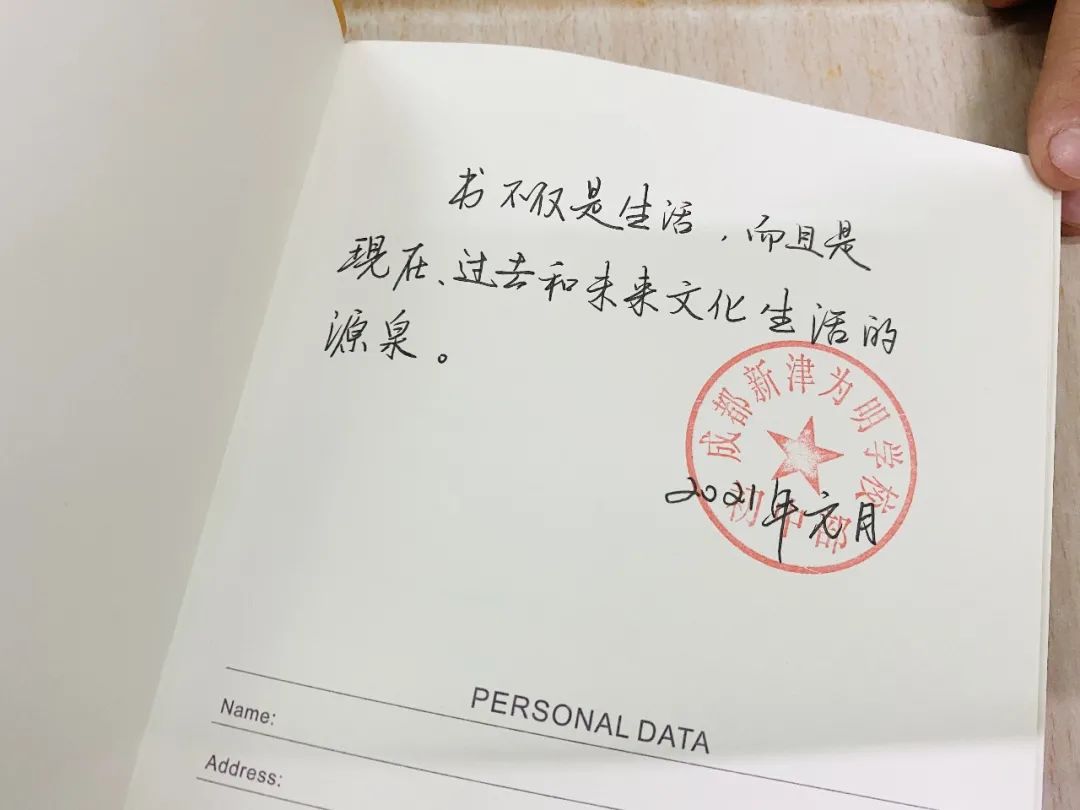 书不仅是生活，而且是
现在、过去和未来文化生活的
源泉。
成都新津为明学校
初中部
2021年元月
PERSONAL DATA
Name:
Address: